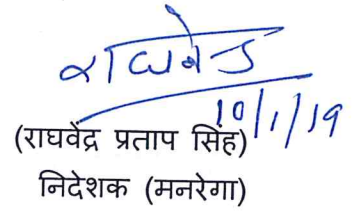 राघवेन्द्र
10/1/19
(राघवेंद्र प्रताप सिंह)
निदेशक (मनरेगा)